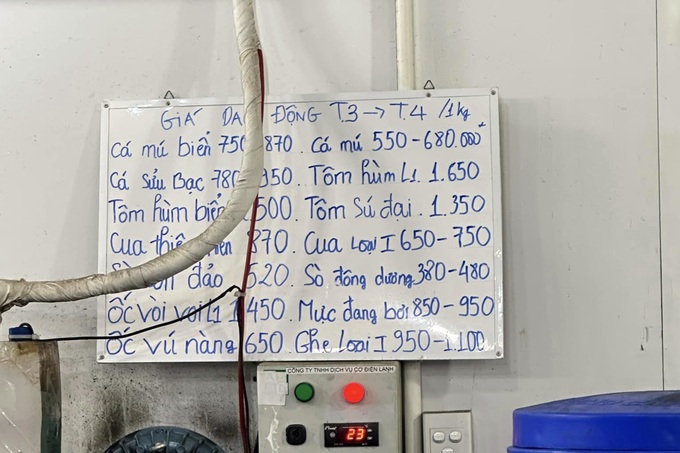 GIÁ ĐỘNG T.3 → T.4 /1kg
Cá mú biển 750 870. Cá mú 550-680.000đ
Cá Sửu Bạc 780 950. Tôm hùm L1. 1.650
Tôm hùm biển 500. Tôm Sú đại. 1.350
Cua 870. Cua Loại I 650-750
đảo 520. Sò đông dương 380-480
Ốc vòi voi L1 450. Mực đang bơi 850-950
Ốc vú nàng 650. Ghẹ Loại I 950-1.100
CÔNG TY TNHH DỊCH VỤ CƠ ĐIỆN LẠNH
23